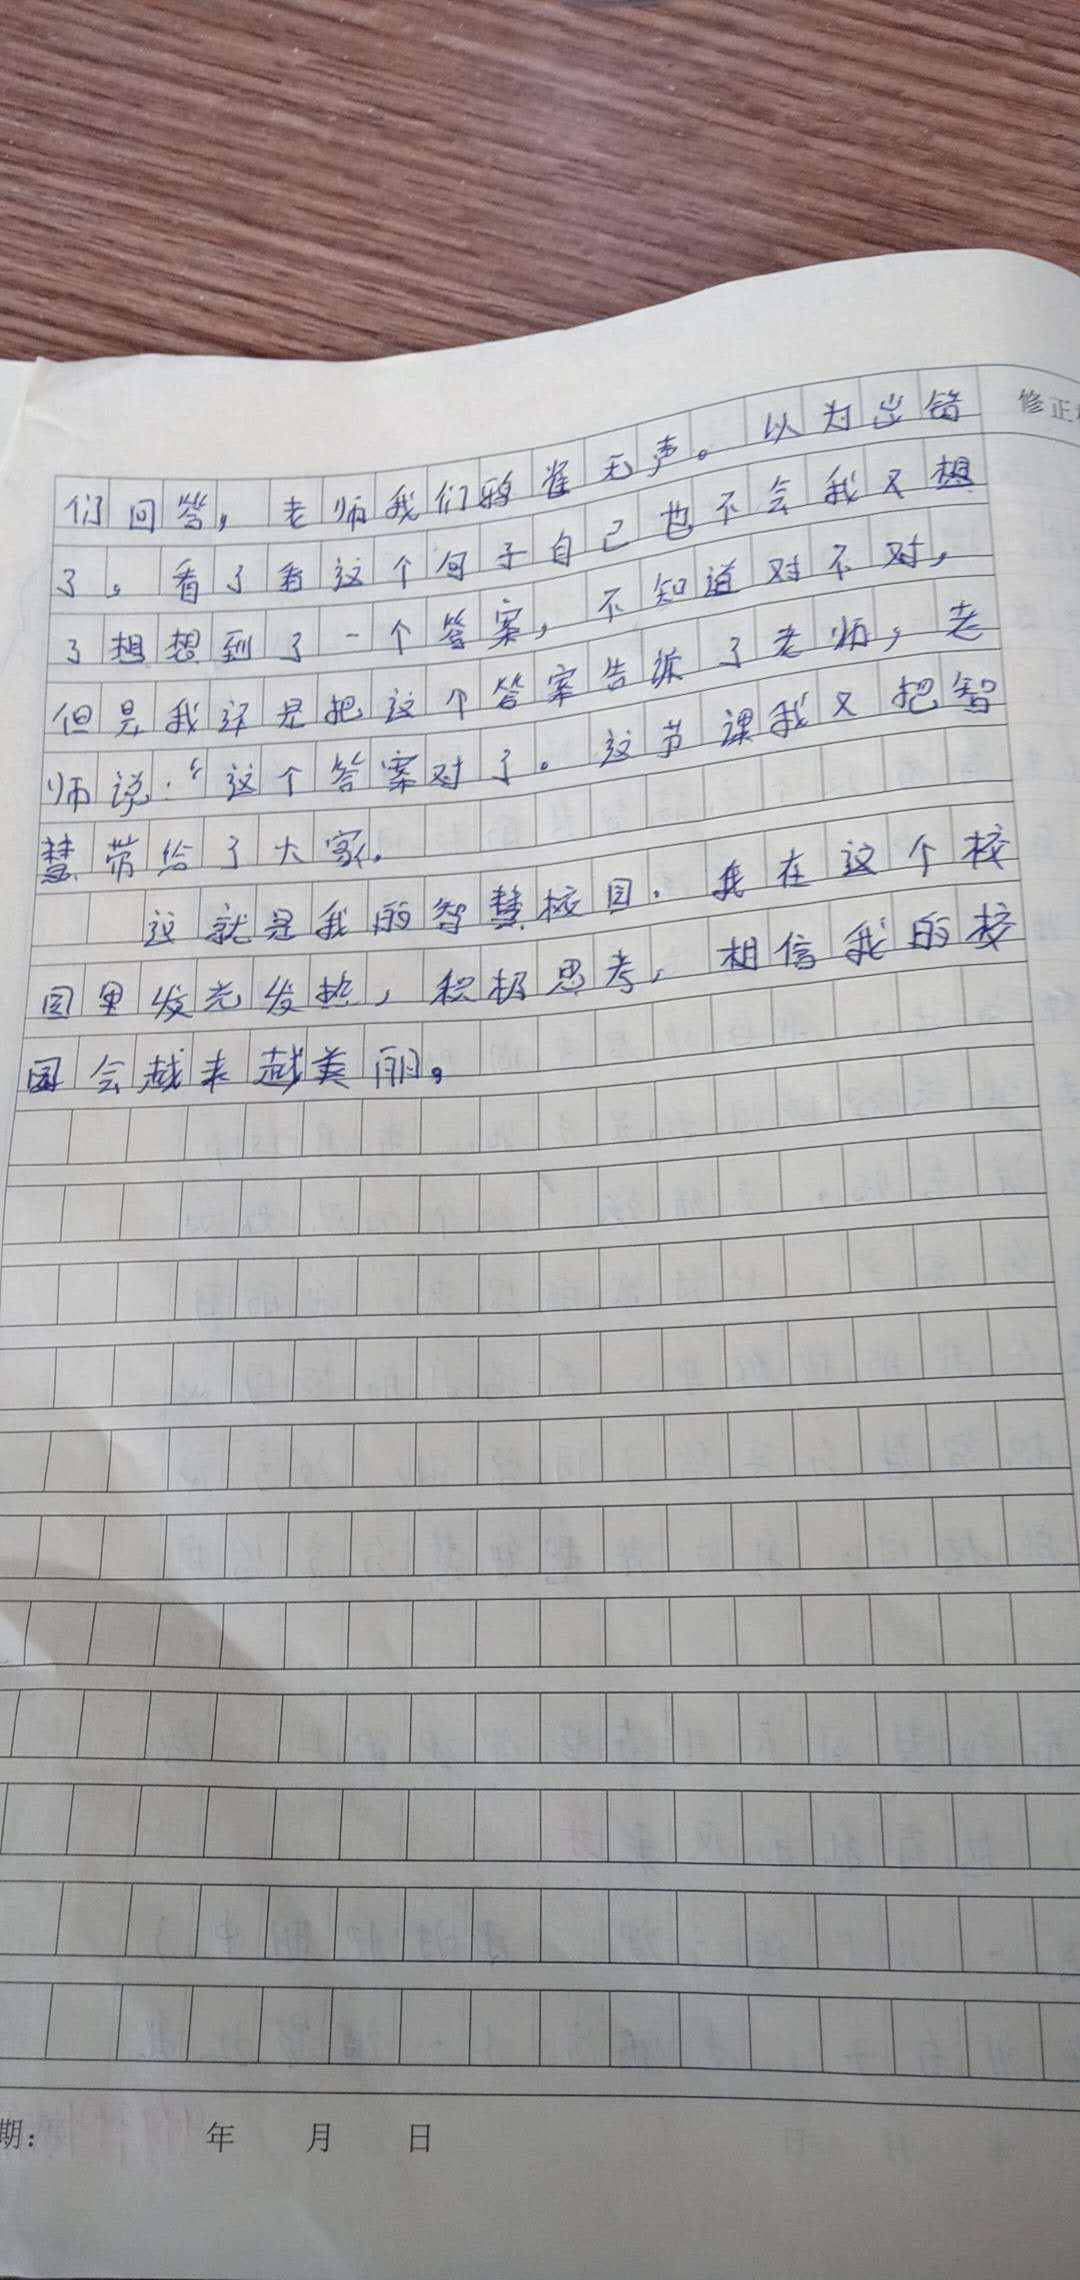 修正
们回答，老师我们鸦雀无声。以为出错
了。看了看这个句子自己也不会我又想
了想想到了一个答案，不知道对不对，
但是我还是把这个答案告诉了老师，老
师说：“这个答案对了。这节课我又把智
慧带给了大家。
这就是我的智慧校园．我在这个校
园里发光发热，积极思考，相信我的校
园会越来越美丽。
期： 年 月 日